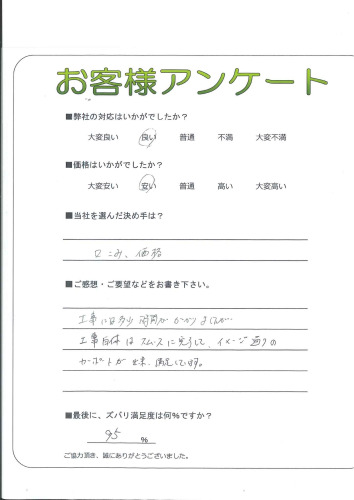 お客様アンケート
■弊社の対応はいかがでしたか？
大変良い 良い 普通 不満 大変不満
■価格はいかがでしたか？
大変安い 安い 普通 高い 大変高い
■当社を選んだ決め手は？
口こみ、価格
■ご感想・ご要望などをお書き下さい。
工事には多少時間がかかりましたが
工事自体はスムースに完了して、イメージ通りの
カーポートが出来、満足しています。
■最後に、ズバリ満足度は何％ですか？
95 %
ご協力頂き、誠にありがとうございました。